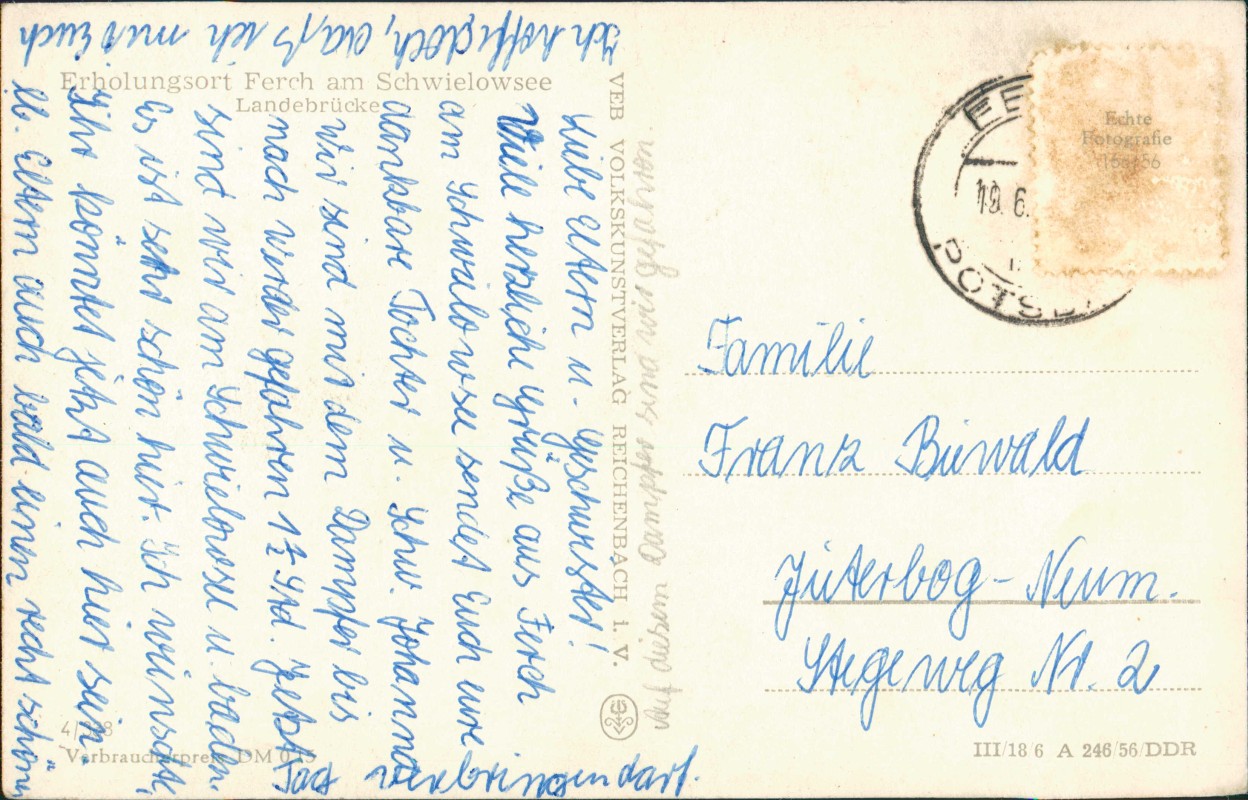 Erholungsort Ferch am Schwielowsee
Landebrücke
Liebe Eltern u. Geschwister!
Viele herzliche Grüße aus Ferch
am Schwielowsee sendet Euch eure
dankbare Tochter u. Schw. Johanna
Wir sind mit dem Dampfer bis
nach Werder gefahren 1½ Std. Jetzt
sind wir am Schwielowsee u. baden.
Es ist sehr schön hier. Ich wünschte,
Ihr könntet jetzt auch hier sein.
lb. Eltern auch bald einen recht schönen
Tag verbringen darf.
Ich hoffe doch, daß ich mit Euch
VEB VOLKSKUNSTVERLAG REICHENBACH I. V.
Auf diesem Dampfer sind wir gefahren.
4/
Verbraucherpreis DM 0
Echte
Fotografie
19. 6.
POTSDA
Familie
Franz Buwald
Jüterbog - Neum.
Stegeweg Nr. 2
III/18 6 A 246/56/DDR